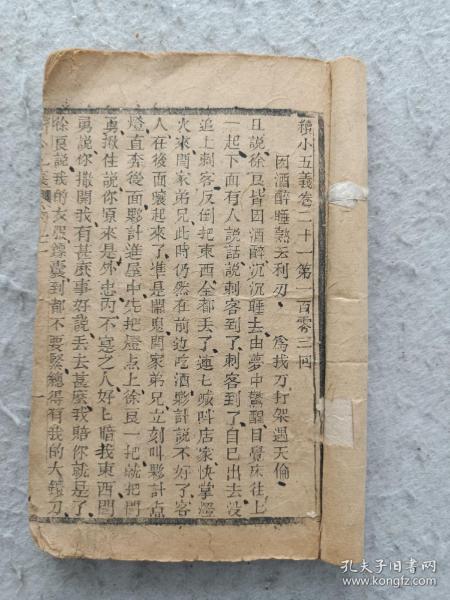 續小五義卷二十一第一百零三回
因酒醉睡熟丟利刃 為找刀打架遇天倫
且說徐良皆因酒醉沉沉睡去由夢中驚醒自覺床往上
一起下面有人說話說刺客到了刺客到了自己出去沒
追上刺客反倒把東西全都丟了連七喊叫店家快掌燈
火來閆家弟兄此時仍然在前边吃酒夥計說不好了客
人在後面嚷起來了準是鬧鬼閆家弟兄立刻叫夥計点
燈直奔後面夥計進屋中先把燈点上徐良一把就把閆
勇揪住說你原來是外忠內不寔之人好乜暗我東西閆
勇說你撒開我有甚麼事好說丟去甚麼我賠你就是了
徐良說我的衣架鏢囊到都不要緊總得有我的大鐶刀
孔夫子旧书网
www.kongfz.com